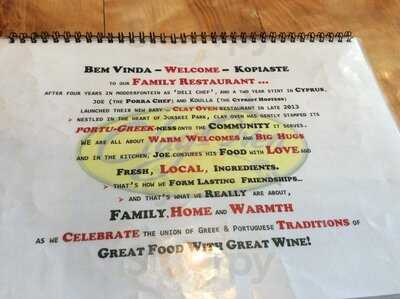 Bem Vinda – Welcome – Kopiaste
to our Family Restaurant ...
after four years in Modderfontein as 'Deli Chef', and a two year stint in Cyprus,
Joe (the Porra Chef) and Koulla (the Cypriot Hostess)
launched their new baby – Clay Oven Restaurant in late 2013
➢ Nestled in the heart of Jukskei Park, Clay Oven has gently stamped its
Portu-Greek-ness onto the Community it serves.
We are all about Warm Welcomes and Big Hugs
and in the kitchen, Joe conjures his Food with Love and
Fresh, Local, Ingredients.
➢ That's how we Form Lasting Friendships..
➢ and that's what we Really are about,
Family, Home and Warmth
as we Celebrate the union of Greek & Portuguese Traditions of
Great Food With Great Wine!